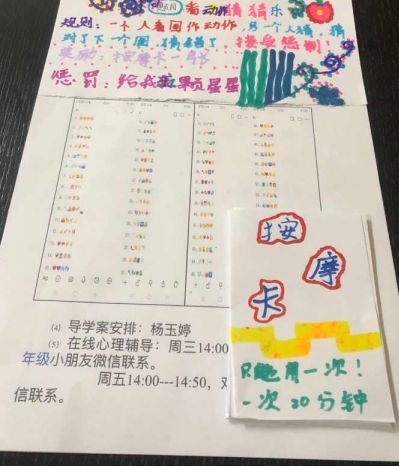 看动猜猜乐
规则:一个人看图作动作,另一个人猜,猜
对了下一个图,猜错了,接受惩罚!
奖励:按摩卡一张
惩罚:给我颗星星
按
摩
卡
只能用一次!
一次20分钟
(4) 导学案安排:杨玉婷
(5) 在线心理辅导:周三14:00
年级小朋友微信联系。
周五14:00---14:50,
信联系。